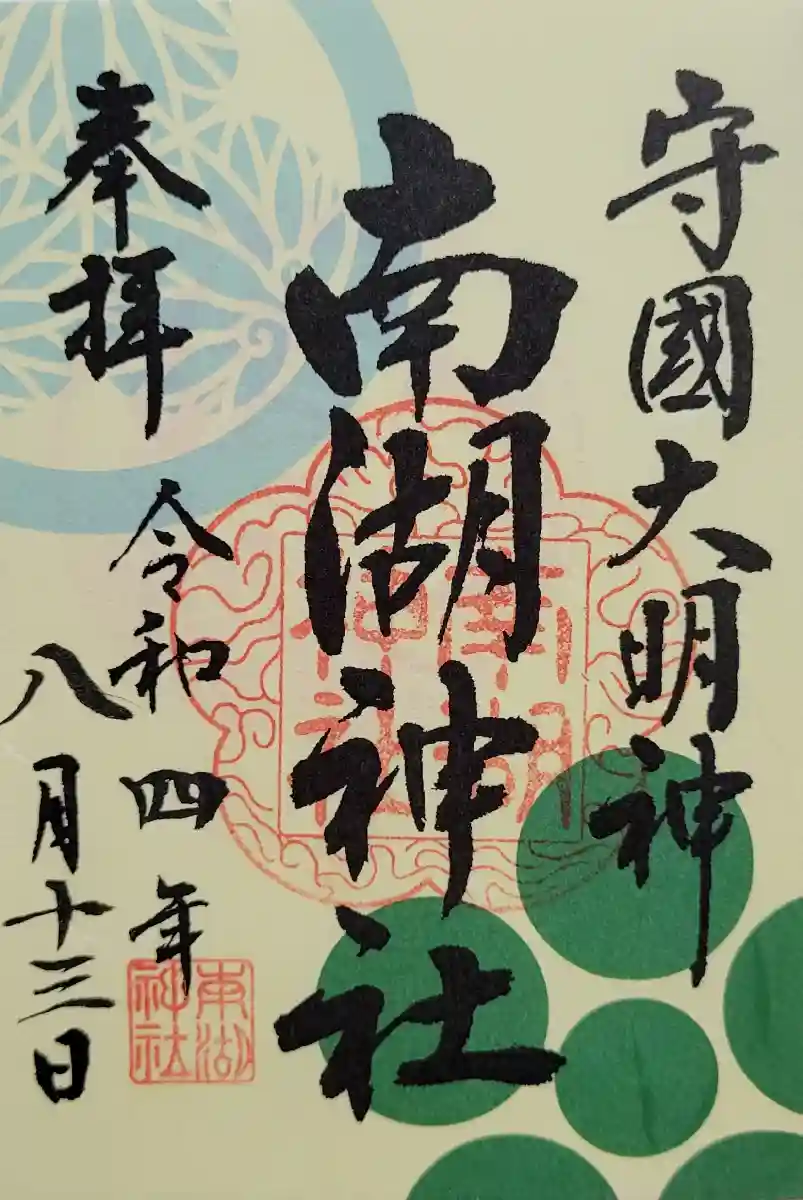 守國大明神
南湖神社
奉拝
令和四年
八月十三日
南湖
神社
南湖
神社